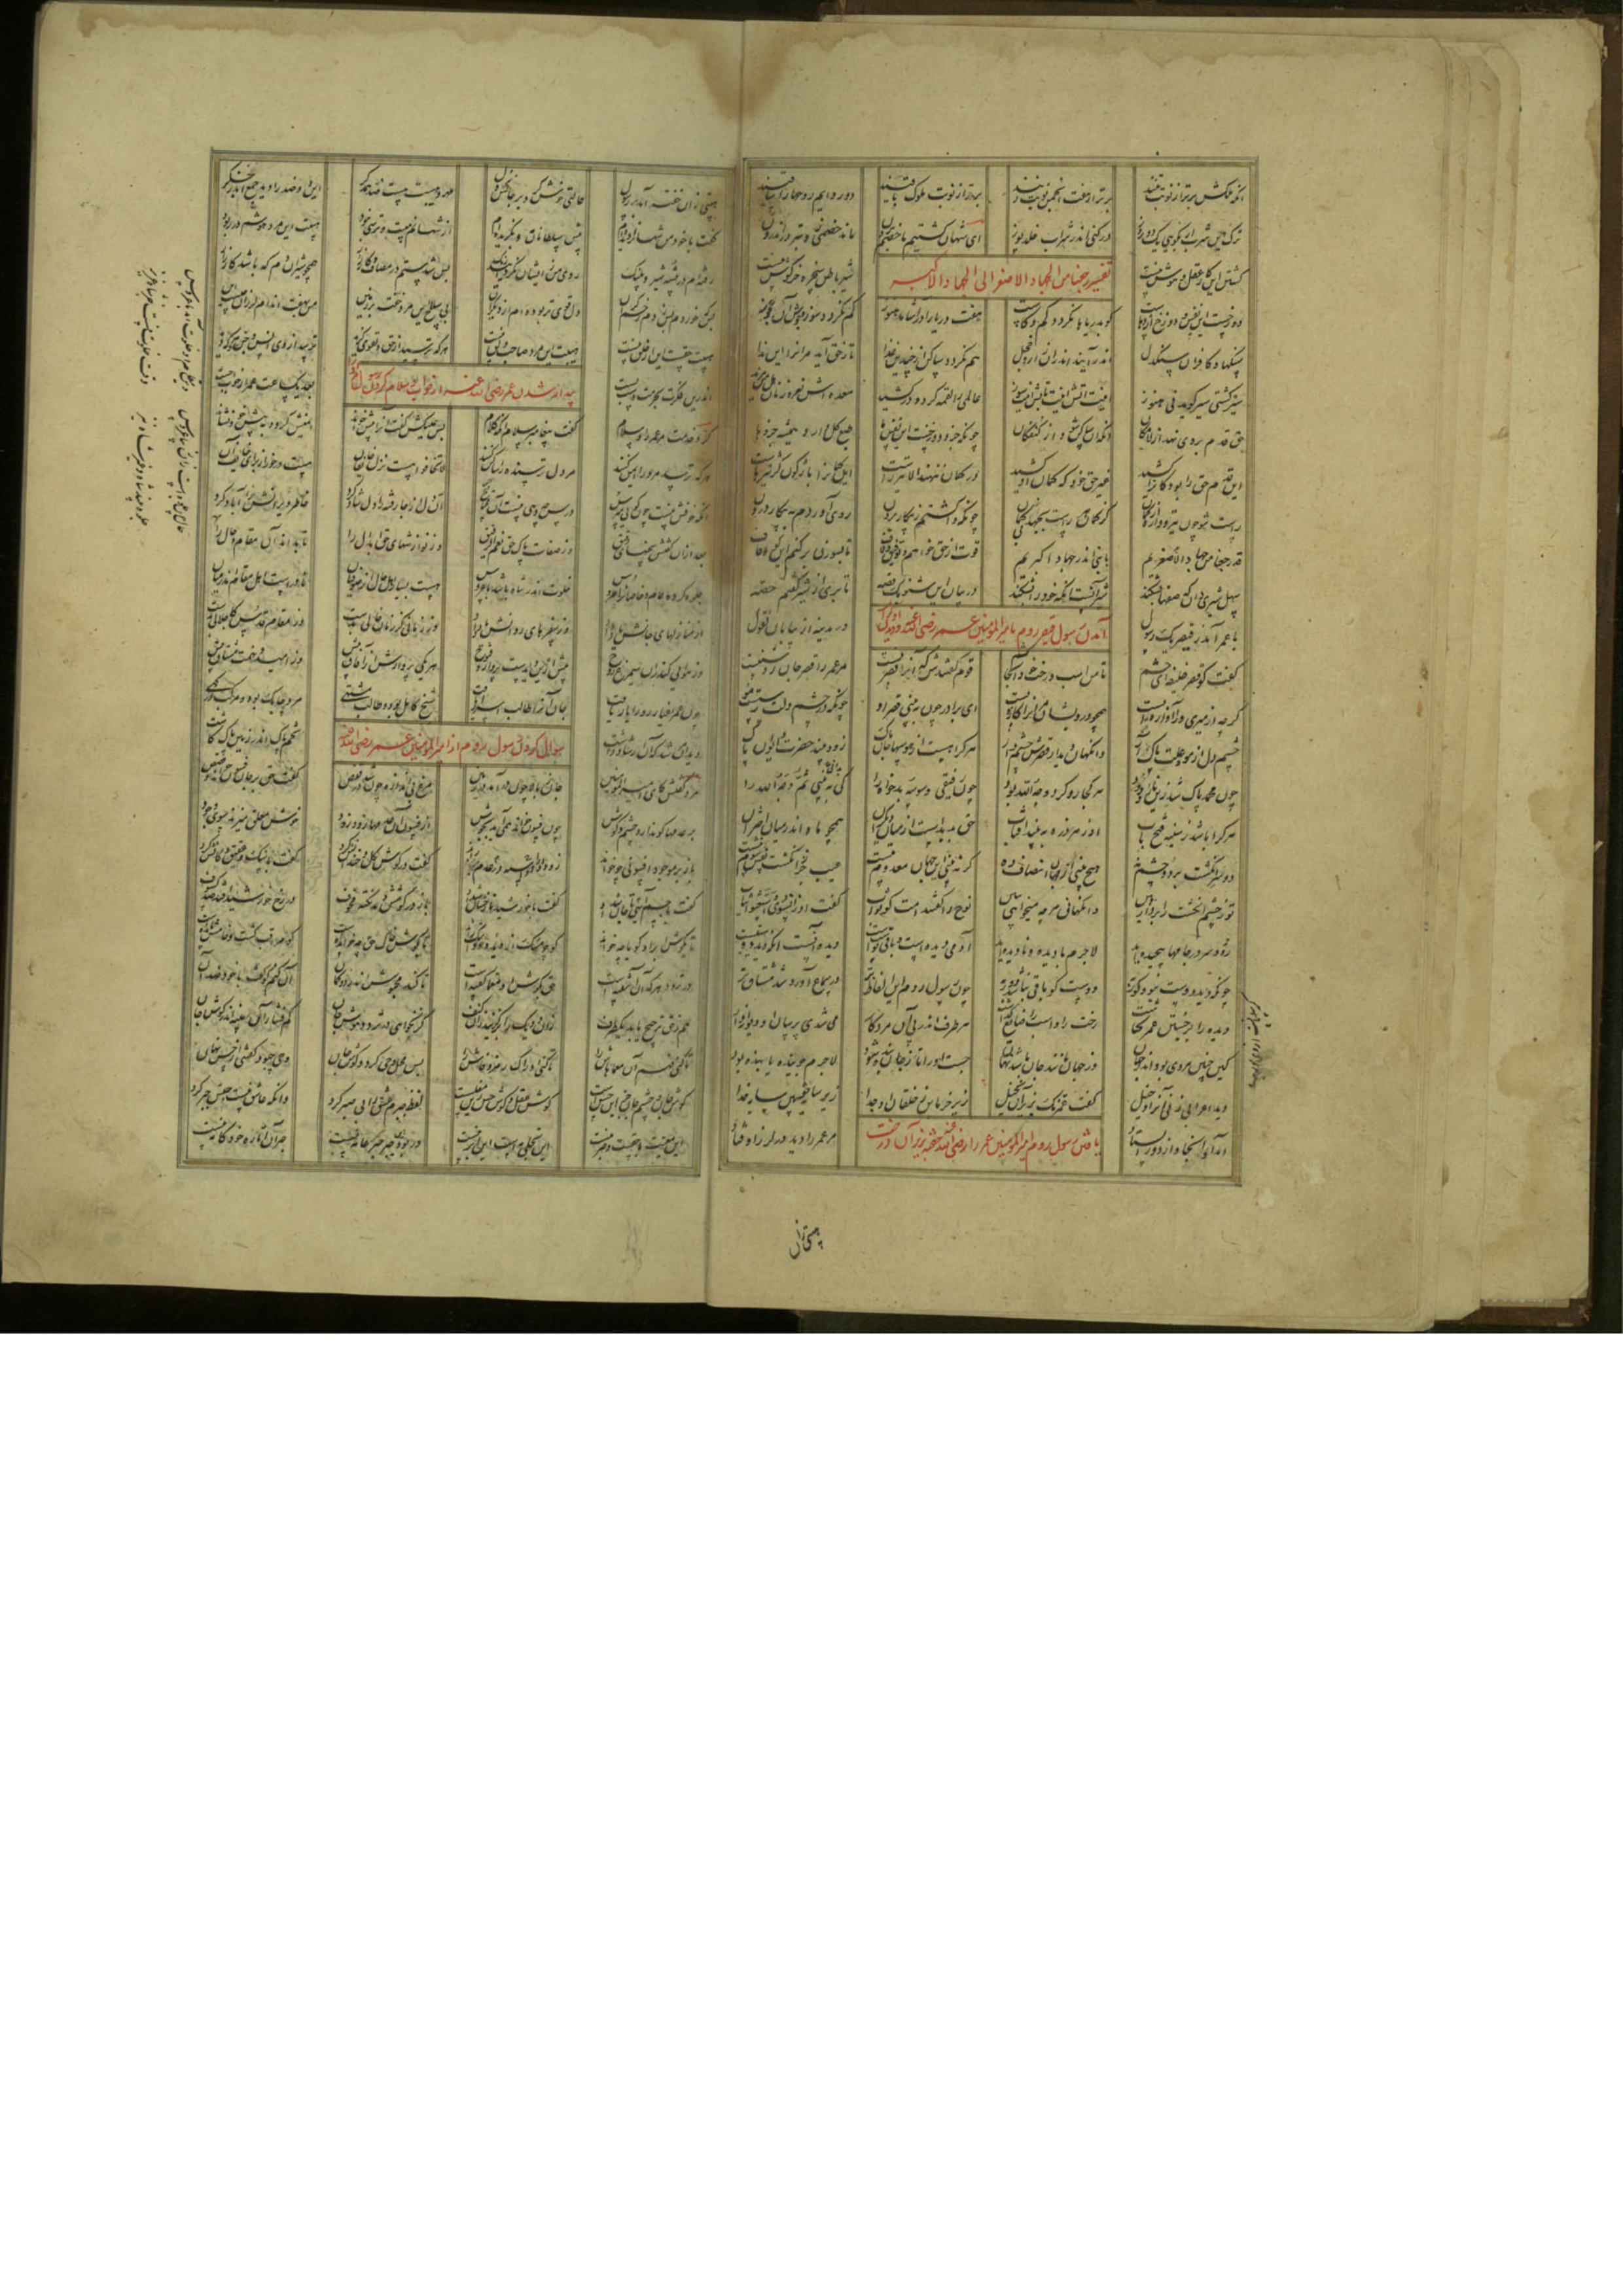 آنکه ملکش برتر از نوبت تنند برتر از هفت انجمش نوبت زنند برتر از نوبت ملوک باقیند دور دایم روحها را ساقیند
ترک این شرب ار بگویی یک دو روز در کنی اندر شراب خلد پوز ای شهان کشتیم ما خصم برون ماند خصمی زو بتر در اندرون
تفسیر رجعنا من الجهاد الاصغر الی الجهاد الاکبر
کشتن این کار عقل و هوش نیست شیر باطن سخره خرگوش نیست
دوزخست این نفس و دوزخ اژدهاست کو بدریاها نگردد کم و کاست هفت دریا را در آشامد هنوز کم نگردد سوزش آن
سنگها و کافران سنگدل اندر آیند اندران زار و خجل هم نگردد ساکن از چندین غذا تا ز حق آید مر او را این ندا
سیر گشتی سیر گوید نی هنوز اینت آتش اینت تابش اینت سوز عالمی را لقمه کرد و در کشید معده اش نعره زنان هل من مزید
حق قدم بر وی نهد از لامکان آنگه او ساکن شود از کن فکان چونکه جزو دوزخست این نفس ما طبع کل دارد همیشه جزوها
این قدم حق را بود کو را کشد غیر حق خود که کمان او کشد در کمان ننهند الا تیر راست این کمان را باژگون کژ تیرهاست
راست شو چون تیر و واره از کمان کز کمان هر راست بجهد بیگمان چونکه واگشتم ز پیکار برون روی آوردم به پیکار درون
قد رجعنا من جهاد الاصغریم با نبی اندر جهاد اکبریم قوت از حق خواهم و توفیق و لاف تا بسوزن برکنم این کوه قاف
سهل شیری دان که صفها بشکند شیر آنست آنکه خود را بشکند در بیان این شنو یک قصه تا بری از سر گفتم حصه
آمدن رسول قیصر روم تا امیرالمومنین عمر رضی الله عنه
با عمر آمد ز قیصر یک رسول در مدینه از بیابان نغول
گفت کو قصر خلیفه ای حشم تا من اسب و رخت را آنجا کشم قوم گفتندش که او را قصر نیست مر عمر را قصر جان روشنیست
گرچه از میری ورا آوازه ایست همچو درویشان مر او را کازه ایست ای برادر چون ببینی قصر او چونکه در چشم دلت رستست مو
چشم دل از مو و علت پاک آر وانگهان دیدار قصرش چشم دار هر کرا هست از هوسها جان پاک زود بیند حضرت و ایوان پاک
چون محمد پاک شد زین نار و دود هر کجا رو کرد وجه الله بود چون رفیقی وسوسه بدخواه را کی ببینی ثم وجه الله را
هر کرا باشد ز سینه فتح باب او ز هر ذره ببیند آفتاب حق پدیدست از میان دیگران همچو ماه اندر میان اختران
دو سر انگشت بر دو چشم نه هیچ بینی از جهان انصاف ده گر نبینی این جهان معدوم نیست عیب جز ز انگشت نفس شوم نیست
تو ز چشم انگشت را بردار هین وانگهانی هر چه میخواهی ببین نوح را گفتند امت کو ثواب گفت او زان سوی واستغشوا ثیاب
رو و سر در جامها پیچیده اید لاجرم با دیده و نادیده اید آدمی دیده است و باقی پوست است دیده آنست آنکه دید دوست است
چونکه دید دوست نبود کور به دوست کو باقی نباشد دور به چون رسول روم این الفاظ تر در سماع آورد شد مشتاق تر
دیده را بر جستن عمر گماشت رخت را و اسب را ضایع گذاشت هر طرف اندر پی آن مرد کار می شدی پرسان او دیوانه وار
کین چنین مردی بود اندر جهان وز جهان مانند جان باشد نهان جست او را تاش چون بنده بود لاجرم جوینده یابنده بود
دید اعرابی زنی او را دخیل گفت عمر نک بزیر آن نخیل زیر خرمابن ز خلقان او جدا زیر سایه خفته بین سایه خدا
یافتن رسول روم امیرالمومنین عمر را رضی الله عنه خفته زیر آن درخت
آمد او آنجا و از دور ایستاد مر عمر را دید و در لرز اوفتاد
هیبتی زان
هیبتی زان خفته آمد بر رسول حالتی خوش کرد بر جانش نزول مهر و هیبت هست ضد همدگر این دو ضد را دید جمع اندر جگر
گفت با خود من شهان را دیده ام پیش سلطانان و بگزیده ام از شهانم هیبت و ترسی نبود هیبت این مرد هوشم در ربود
رفته ام در بیشه شیر و پلنگ روی من ز ایشان نگردانید رنگ بس شدستم در مصاف و کارزار همچو شیر آن دم که باشد کار زار
بس که خوردم بس زدم زخم گران دل قوی تر بوده ام از دیگران بی سلاح این مرد خفته بر زمین من بهفت اندام لرزان چیست این
هیبت حقست این از خلق نیست هیبت این مرد صاحب دلق نیست هر که ترسید از حق و تقوی گزید ترسد از وی جن و انس و هر که دید
بیدار شدن عمر رضی الله عنه از خواب و سلام کردن رسول او را
اندرین فکرت بحرمت دست بست بعد یک ساعت عمر از خواب جست
کرد خدمت مر عمر را و سلام گفت پیغامبر سلام آنگه کلام پس علیکش گفت و او را پیش خواند ایمنش کرد و به پیش خود نشاند
هر که ترسد مر ورا ایمن کنند مر دل ترسنده را ساکن کنند لا تخافوا هست نزل خایفان هست درخور از برای خایف آن
آنکه خوفش نیست چون گویی مترس درس چه دهی نیست او محتاج درس آن دل از جا رفته را دلشاد کرد خاطر ویرانش را آباد کرد
بعد از آن گفتش سخنهای دقیق وز صفات پاک حق نعم الرفیق وز نوازشهای حق ابدال را تا بداند آن مقام و حال را
جلوه کرده عام و خاصان را عروس خلوت اندر شاه باشد با عروس هست بسیار اهل حال از صوفیان نادرست اهل مقام اندر میان
از منازلهای جانش یاد داد وز سفرهای روانش یاد داد وز زمانی کز زمان خالی بدست وز مقام قدس کاجلالی بدست
وز هوایی کاندرو سیمرغ روح پیش ازین دیدست پرواز و فتوح هر یکی پروازش از آفاق بیش وز امید و نهمت مشتاق بیش
چون عمر اغیار رو را یار یافت جان او را طالب اسرار یافت شیخ کامل بود و طالب مشتهی مرد چابک بود و مرکب درگهی
دید آن مرشد که او ارشاد داشت تخم پاک اندر زمین پاک کاشت
سوال کردن رسول روم از امیرالمومنین عمر رضی الله عنه
مرد گفتش کای امیرالمومنین جان ز بالا چون در آمد در زمین مرغ بی اندازه چون شد در قفص گفت حق بر جان فسون خواند و قصص
بر عدمها کو ندارد چشم و گوش چون فسون خواند همی آید بجوش از فسون او عدمها زود زود خوش معلق میزند سوی وجود
باز بر موجود افسونی چو خواند زو دو اسپه در عدم موجود راند گفت در گوش گل و خندانش کرد گفت با سنگ و عقیق کانش کرد
گفت با جسم آیتی تا جان شد او گفت با خورشید تا رخشان شد او باز در گوشش دمد نکته مخوف در رخ خورشید افتد صد کسوف
تا بگوش ابر آن گویا چه خواند کو چو مشک از دیده خود آب راند تا بگوش خاک حق چه خوانده است کو مراقب گشت و خامش مانده است
در تردد هر که او آشفته است حق بگوش او معما گفته است تا کند محبوسش اندر دو گمان آن کنم کو گفت یا خود ضد آن
هم ز حق ترجیح یابد یکطرف زان دو یک را برگزیند زان کنف گر نخواهی در تردد هوش جان کم فشار این پنبه اندر گوش جان
تا کنی فهم آن معماهاش را تا کنی ادراک رمز و فاش را پس محل وحی گردد گوش جان وحی چه بود گفتنی از حس نهان
گوش جان و چشم جان جز این حس است گوش عقل و گوش حس زین مفلس است لفظ جبرم عشق را بی صبر کرد وانکه عاشق نیست حبس جبر کرد
این معیت با حقست و جبر نیست این تجلی مه است این ابر نیست ور بود این جبر جبر عامه نیست جبر آن اماره خودکامه نیست